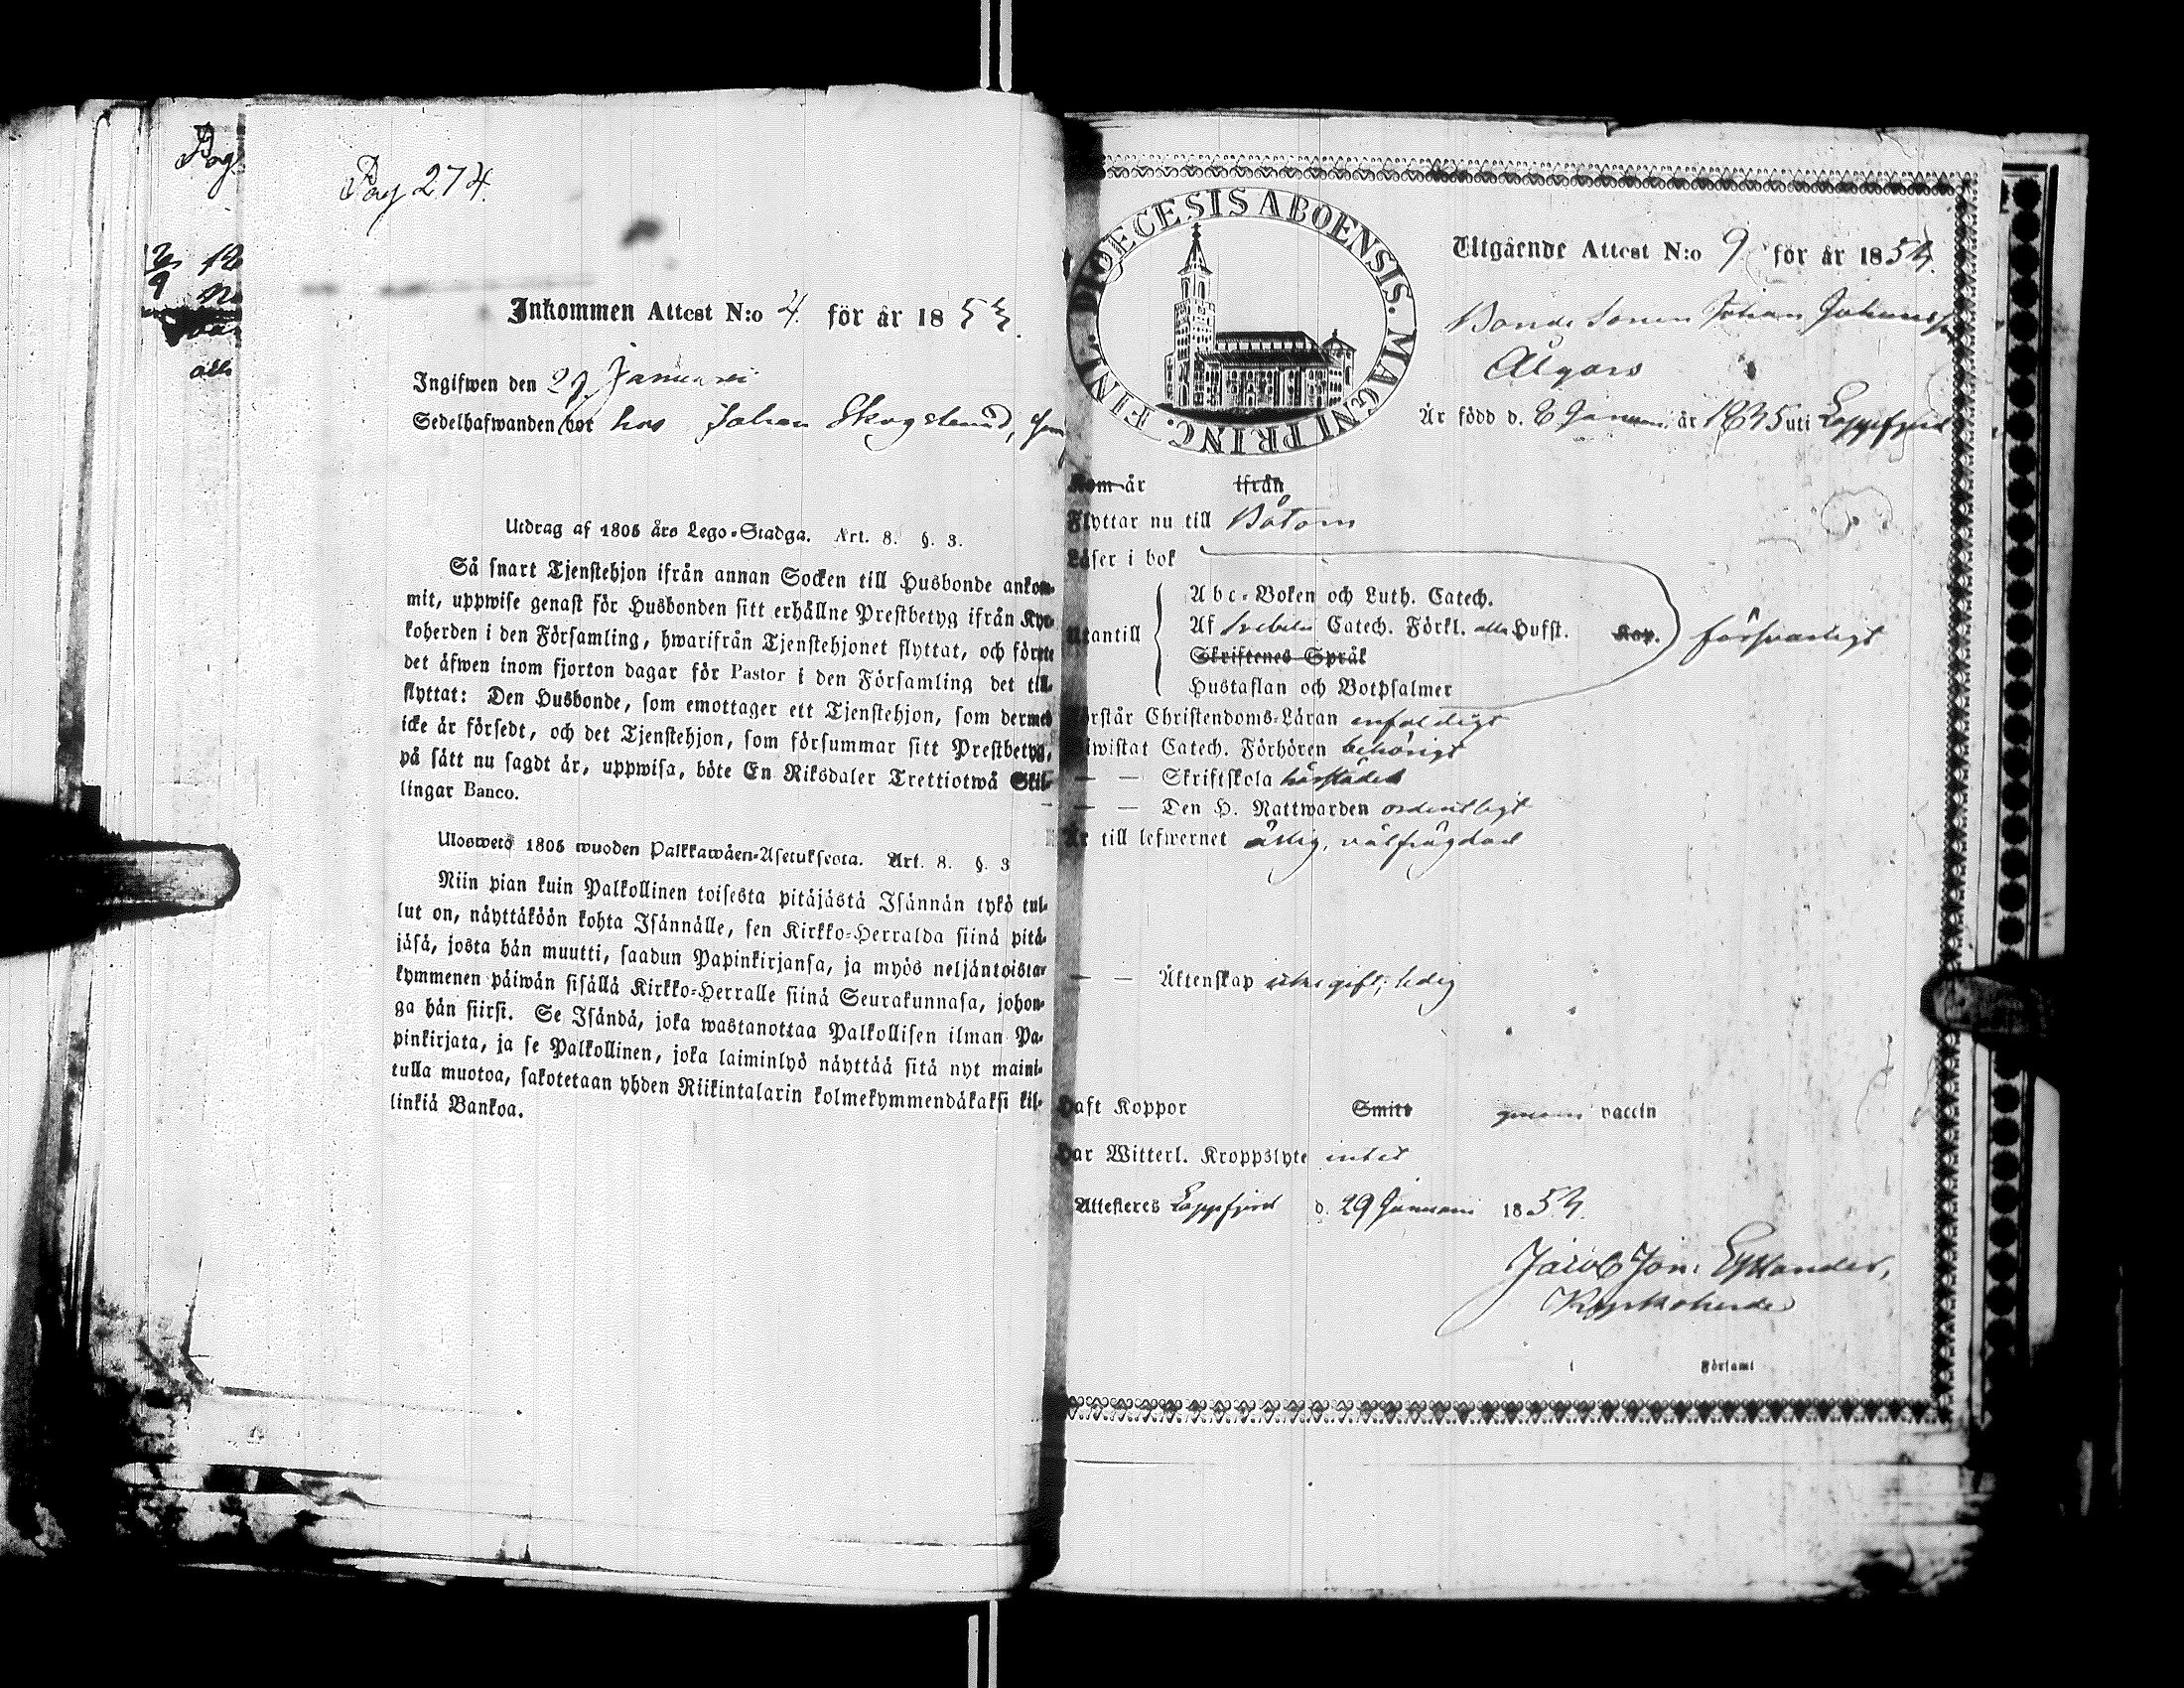 Pag 274.
Inkommen Attest N:o 4. för år 1853.
Ingifwen den 29 Januari
Sedelhafwanden bor hos Johan Skoglund,
Utdrag af 1805 års Lego-Stadga. Art. 8. §. 3.
Så snart Tjenstehjon ifrån annan Socken till Husbonde ankom-
mit, uppwise genast för Husbonden sitt erhållne Prestbetyg ifrån Kyr-
koherden i den Församling, hwarifrån Tjenstehjonet flyttat, och förete
det äfwen inom fjorton dagar för Pastor i den Församling det till-
flyttat: Den Husbonde, som emottager ett Tjenstehjon, som dermed
icke är försedt, och det Tjenstehjon, som försummar sitt Prestbetyg,
på sätt nu sagdt är, uppwisa, böte En Riksdaler Trettiotwå Skil-
lingar Banco.
Uloswetö 1805 wuoden Palkkawäen-Asetuksesta. Art. 8. §. 3
Niin pian kuin Palkollinen toisesta pitäjästä Isännän tykö tul-
lut on, näyttäköön kohta Isännälle, sen Kirkko-Herralda siinä pitä-
jäsä, josta hän muutti, saadun Papinkirjansa, ja myös neljäntoista-
kymmenen päiwän sisällä Kirkko-Herralle siinä Seurakunnasa, johon-
ga hän siirsi. Se Isändä, joka wastanottaa Palkollisen ilman Pa-
pinkirjata, ja se Palkollinen, joka laiminlyö näyttää sitä nyt maini-
tulla muotoa, sakotetaan yhden Riikintalarin kolmekymmendäkaksi kil-
linkiä Bankoa.
DIOECESIS ABOENSIS. MAGNI PRINC. FINL.
Utgående Attest N:o 9 för år 1853.
Bonde Sonen Johan Johansson
Ålgars
Är född d. 8 Januari år 1835 uti Lappfjerd
Kom år ifrån
Flyttar nu till Båtom
Läser i bok
Utantill
Abc-Boken och Luth. Catech.
Af Svebilii Catech. Förkl. alla Hufst. Kap. försvarligt
Skriftenes Språk
Hustaflan och Botpsalmer
Förstår Christendoms-Läran enfaldigt
Biwistat Catech. Förhören behörigt
— — Skriftskola härstädes
— — Den H. Nattwarden ordentligt
Är till lefwernet ärlig, välfrägdad
— — Äktenskap icke gift; ledig
Haft Koppor Smitt genom vaccin
Har Witterl. Kroppslyte intet
Attesteres Lappfjerd d. 29 Januari 1853.
Jacob Jon. Estlander,
Kyrkoherde
i Församl